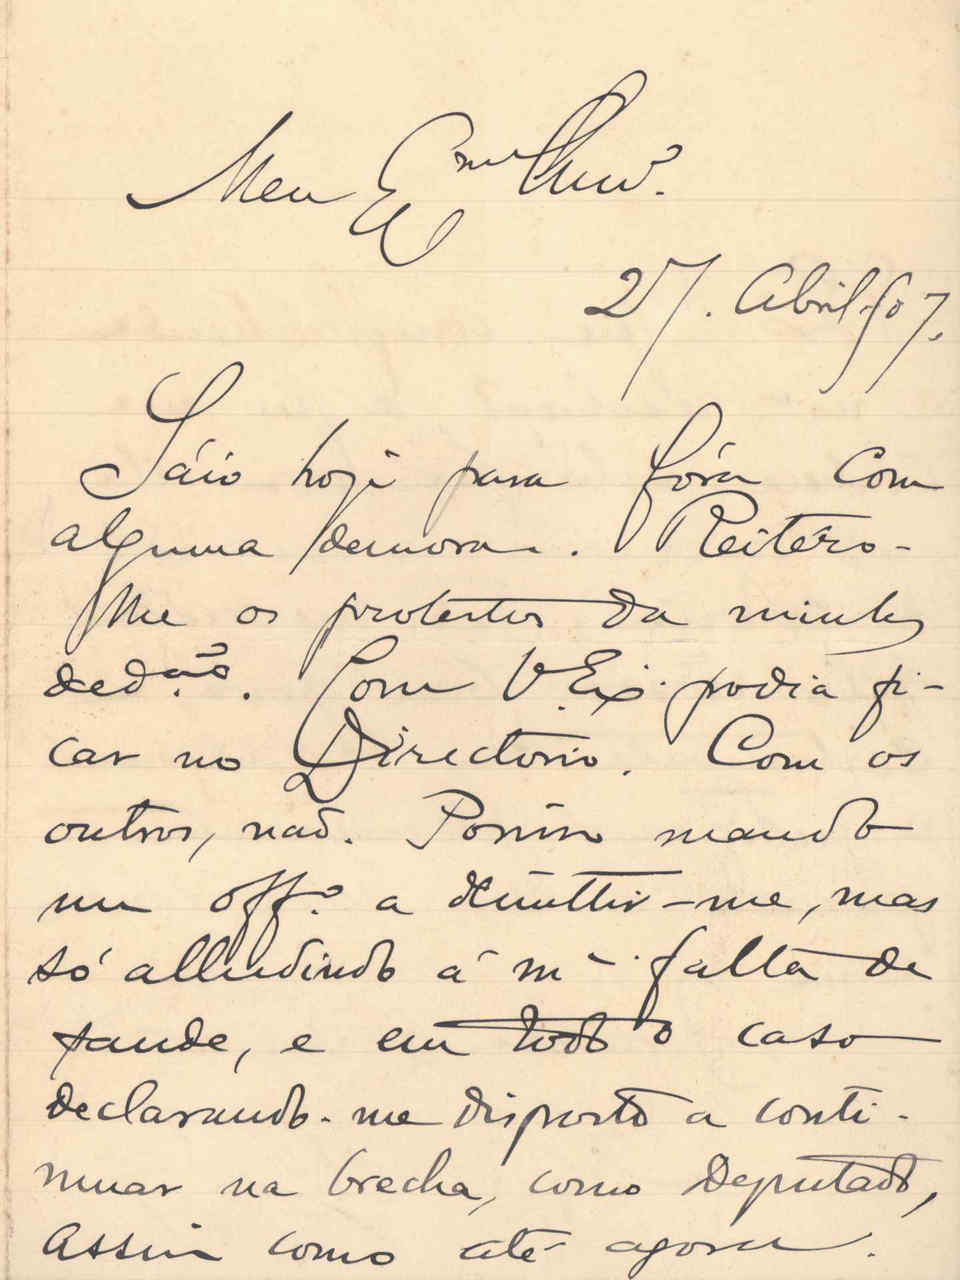 Meu Exmo Amo.
27. Abril. 907.
Sáio hoje para fóra com
alguma demora. Reitéro-
me os protestos da minha
dedção. Com V. Ex. podia fi-
car no Directorio. Com os
outros, não. Porisso mando
um offo. a demittir-me, mas
só alludindo á ma falta de
saude, e em todo o caso
declarando-me disposto a conti-
nuar na brecha, como Deputado,
assim como até agora.